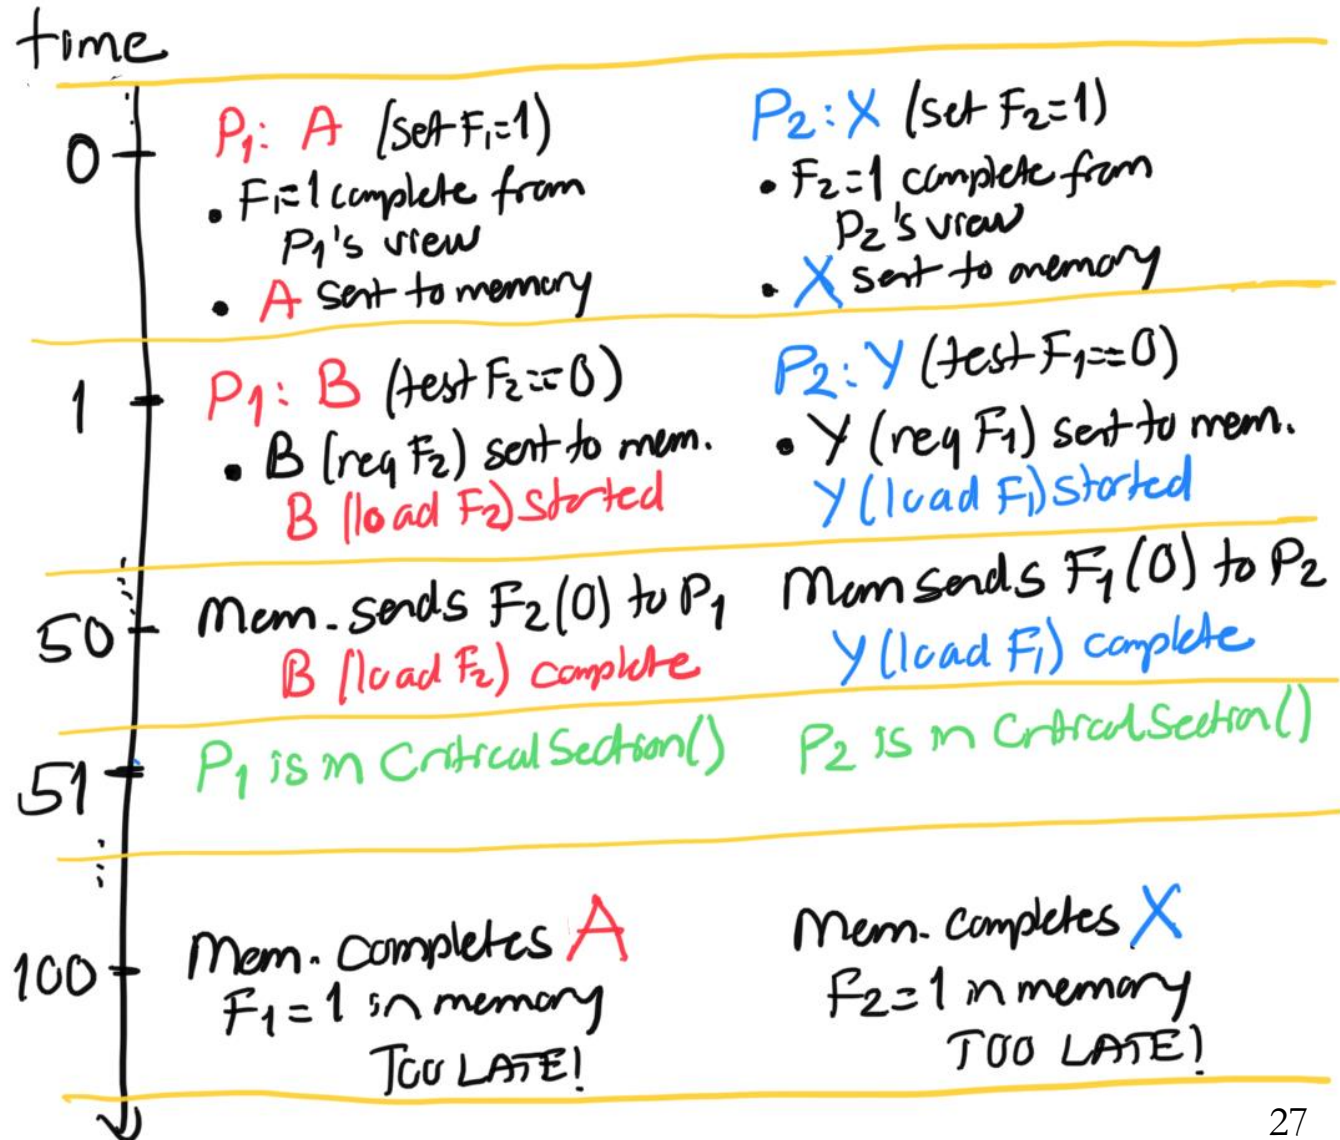 time
0
P₁: A (set F₁=1)
• F₁=1 complete from
P₁'s view
• A sent to memory
P₂: X (set F₂=1)
• F₂=1 complete from
P₂'s view
• X sent to memory
1
P₁: B (test F₂==0)
• B (req F₂) sent to mem.
B (load F₂) started
P₂: Y (test F₁==0)
• Y (req F₁) sent to mem.
Y (load F₁) started
50
Mem. sends F₂(0) to P₁
B (load F₂) complete
Mem sends F₁(0) to P₂
Y (load F₁) complete
51
P₁ is in Critical Section()
P₂ is in Critical Section()
100
Mem. completes A
F₁=1 in memory
TOO LATE!
Mem. completes X
F₂=1 in memory
TOO LATE!
27